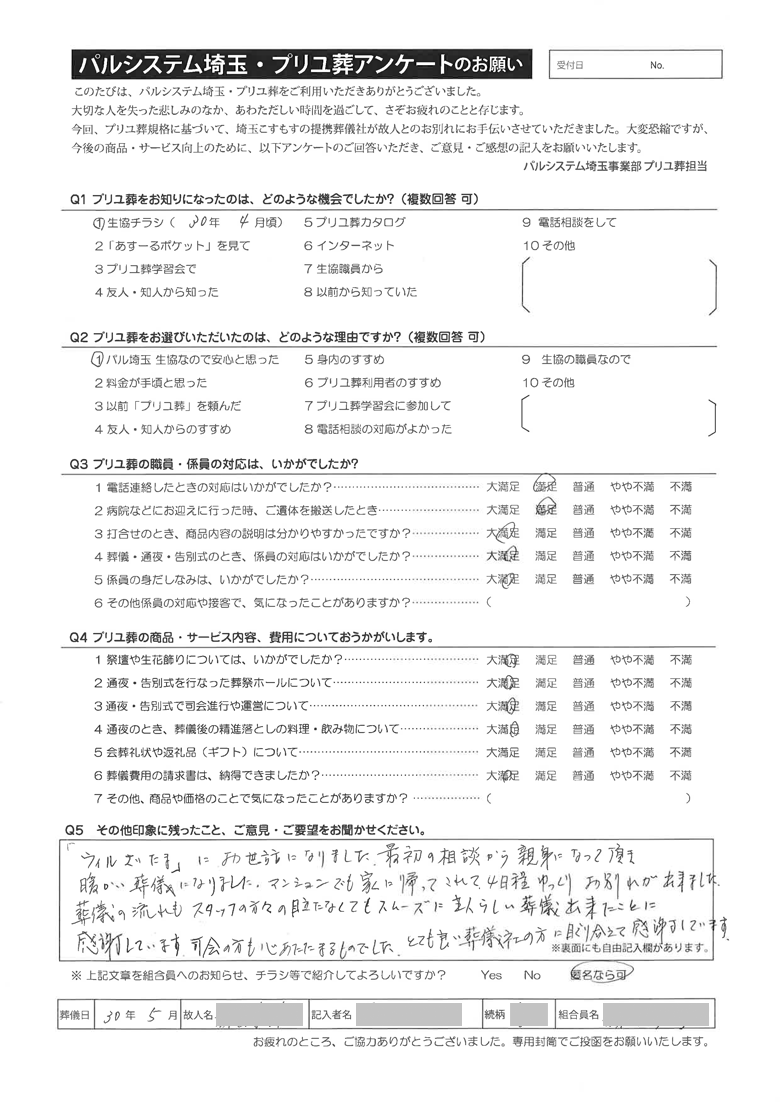 パルシステム埼玉・プリユ葬アンケートのお願い
受付日 No.
このたびは、パルシステム埼玉・プリユ葬をご利用いただきありがとうございました。
大切な人を失った悲しみのなか、あわただしい時間を過ごして、さぞお疲れのことと存じます。
今回、プリユ葬規格に基づいて、埼玉こすもすの提携葬儀社が故人とのお別れにお手伝いさせていただきました。大変恐縮ですが、
今後の商品・サービス向上のために、以下アンケートのご回答いただき、ご意見・ご感想の記入をお願いいたします。
パルシステム埼玉事業部 プリユ葬担当
Q1 プリユ葬をお知りになったのは、どのような機会でしたか?(複数回答 可)
1 生協チラシ( 30年 4 月頃) 5 プリユ葬カタログ 9 電話相談をして
2「あすーるポケット」を見て 6 インターネット 10 その他
3 プリユ葬学習会で 7 生協職員から
4 友人・知人から知った 8 以前から知っていた
Q2 プリユ葬をお選びいただいたのは、どのような理由ですか?(複数回答 可)
1 パル埼玉 生協なので安心と思った 5 身内のすすめ 9 生協の職員なので
2 料金が手頃と思った 6 プリユ葬利用者のすすめ 10 その他
3 以前「プリユ葬」を頼んだ 7 プリユ葬学習会に参加して
4 友人・知人からのすすめ 8 電話相談の対応がよかった
Q3 プリユ葬の職員・係員の対応は、いかがでしたか?
1 電話連絡したときの対応はいかがでしたか?⋯⋯ 大満足 満足 普通 やや不満 不満
2 病院などにお迎えに行った時、ご遺体を搬送したとき⋯⋯ 大満足 満足 普通 やや不満 不満
3 打合せのとき、商品内容の説明は分かりやすかったですか?⋯⋯ 大満足 満足 普通 やや不満 不満
4 葬儀・通夜・告別式のとき、係員の対応はいかがでしたか?⋯⋯ 大満足 満足 普通 やや不満 不満
5 係員の身だしなみは、いかがでしたか?⋯⋯ 大満足 満足 普通 やや不満 不満
6 その他係員の対応や接客で、気になったことがありますか?⋯⋯ ( )
Q4 プリユ葬の商品・サービス内容、費用についておうかがいします。
1 祭壇や生花飾りについては、いかがでしたか?⋯⋯ 大満足 満足 普通 やや不満 不満
2 通夜・告別式を行なった葬祭ホールについて⋯⋯ 大満足 満足 普通 やや不満 不満
3 通夜・告別式で司会進行や運営について⋯⋯ 大満足 満足 普通 やや不満 不満
4 通夜のとき、葬儀後の精進落としの料理・飲み物について⋯⋯ 大満足 満足 普通 やや不満 不満
5 会葬礼状や返礼品(ギフト)について⋯⋯ 大満足 満足 普通 やや不満 不満
6 葬儀費用の請求書は、納得できましたか?⋯⋯ 大満足 満足 普通 やや不満 不満
7 その他、商品や価格のことで気になったことがありますか?⋯⋯ ( )
Q5 その他印象に残ったこと、ご意見・ご要望をお聞かせください。
「ウィルさいたま」にお世話になりました。最初の相談から親身になって頂き
暖かい葬儀になりました。マンションでも家に帰ってこれて4日程ゆっくりお別れが出来ました。
葬儀の流れもスタッフの方々の目立たなくてもスムーズに主人らしい葬儀出来たことに
感謝しています。司会の方も心あたたまるものでした。とても良い葬儀社の方に巡り会えて感謝しています。
※裏面にも自由記入欄があります。
※ 上記文章を組合員へのお知らせ、チラシ等で紹介してよろしいですか? Yes No 匿名なら可
葬儀日 30年 5 月 故人名 記入者名 続柄 組合員名
お疲れのところ、ご協力ありがとうございました。専用封筒でご投函をお願いいたします。